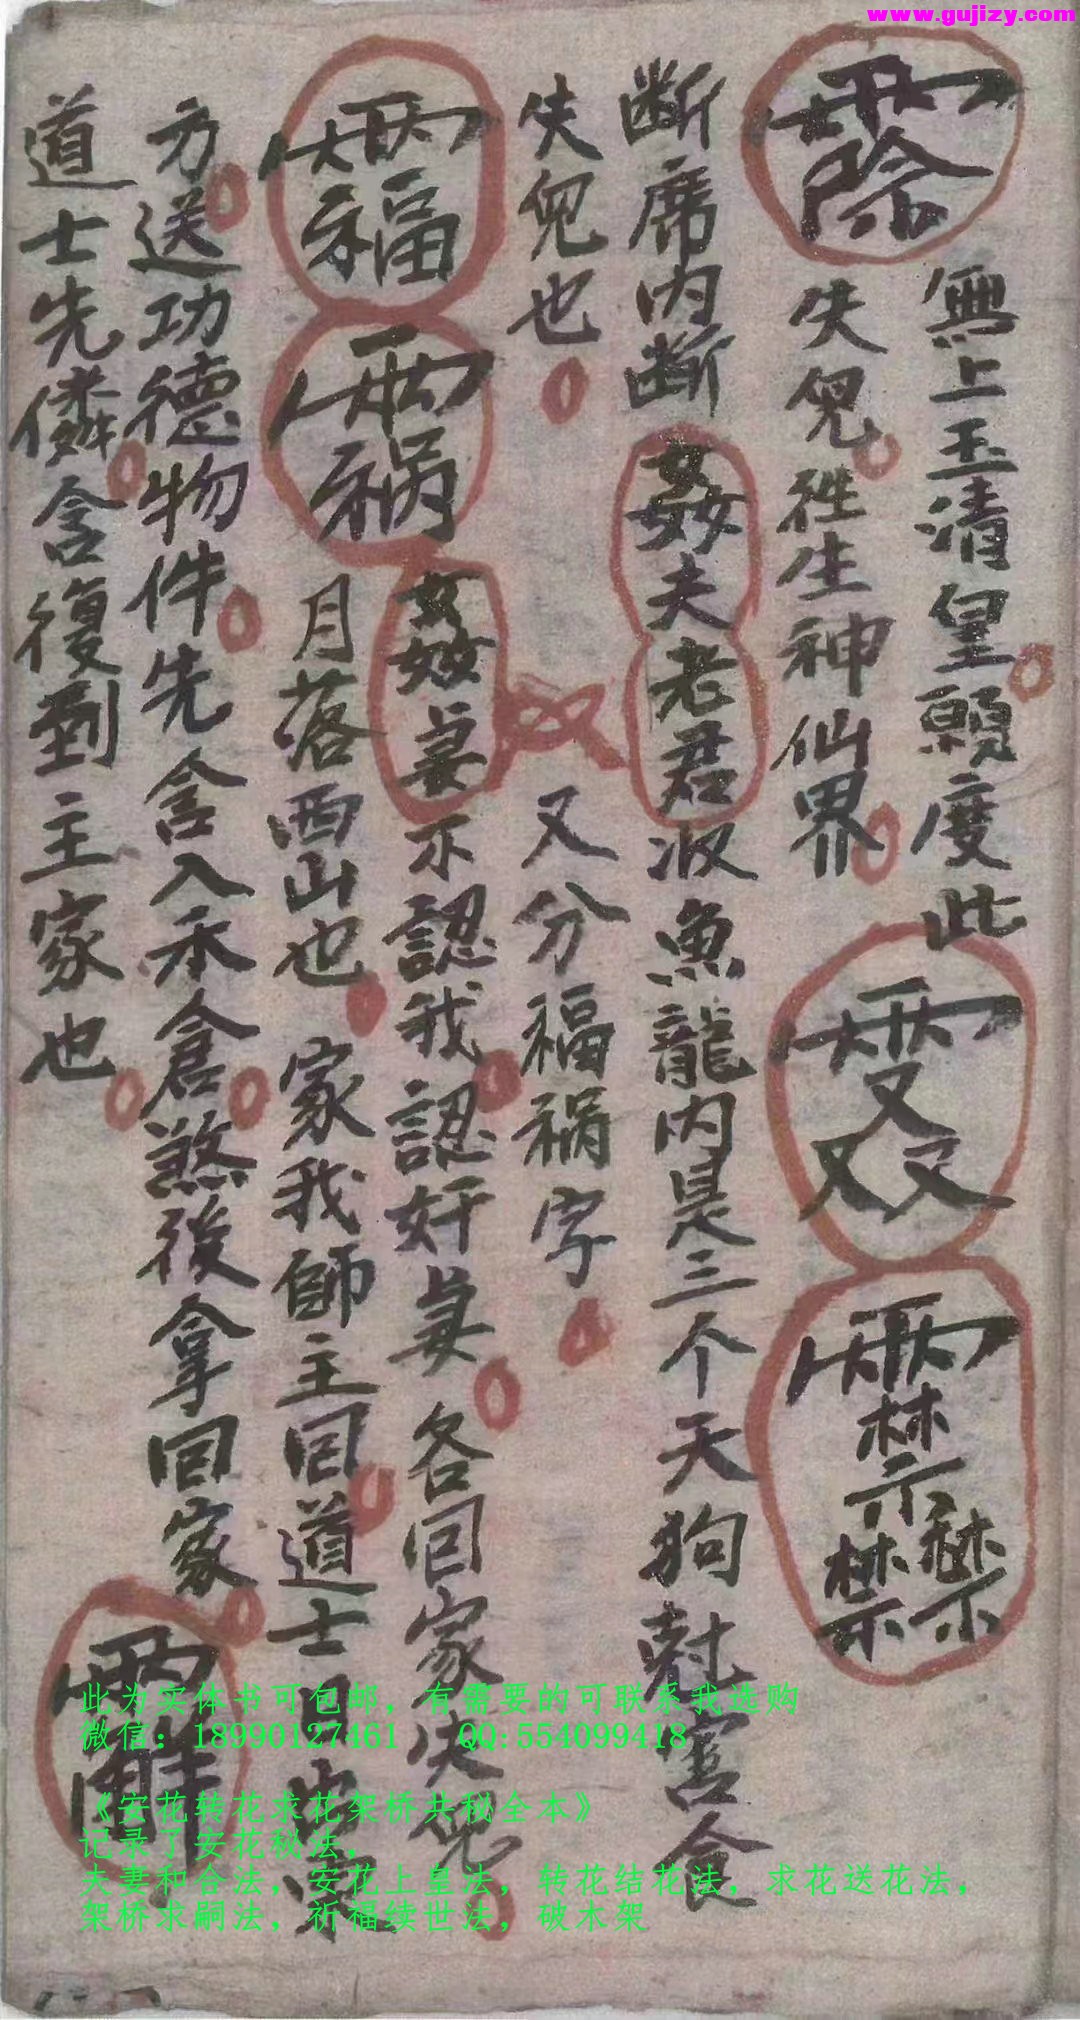 www.gujizy.com
無上玉清皇願度此
失兒往生神仙界
断席内断姦夫老君收魚龍内是三个天狗尅害食
失兒也
又分福祸字
姦妻不認我認奸妻各回家失兒
月落西山也家我師主回道士
方送功德物件先含入禾倉煞後拿回家
道士先含復到主家也
此为实体书可包邮，有需要的可联系我选购
微信：18990127461 QQ:554099418
《安花转花求花架桥共秘全本》
记录了安花秘法，
夫妻和合法，安花上皇法，转花结花法，求花送花法，
架桥求嗣法，祈福续世法，破木架